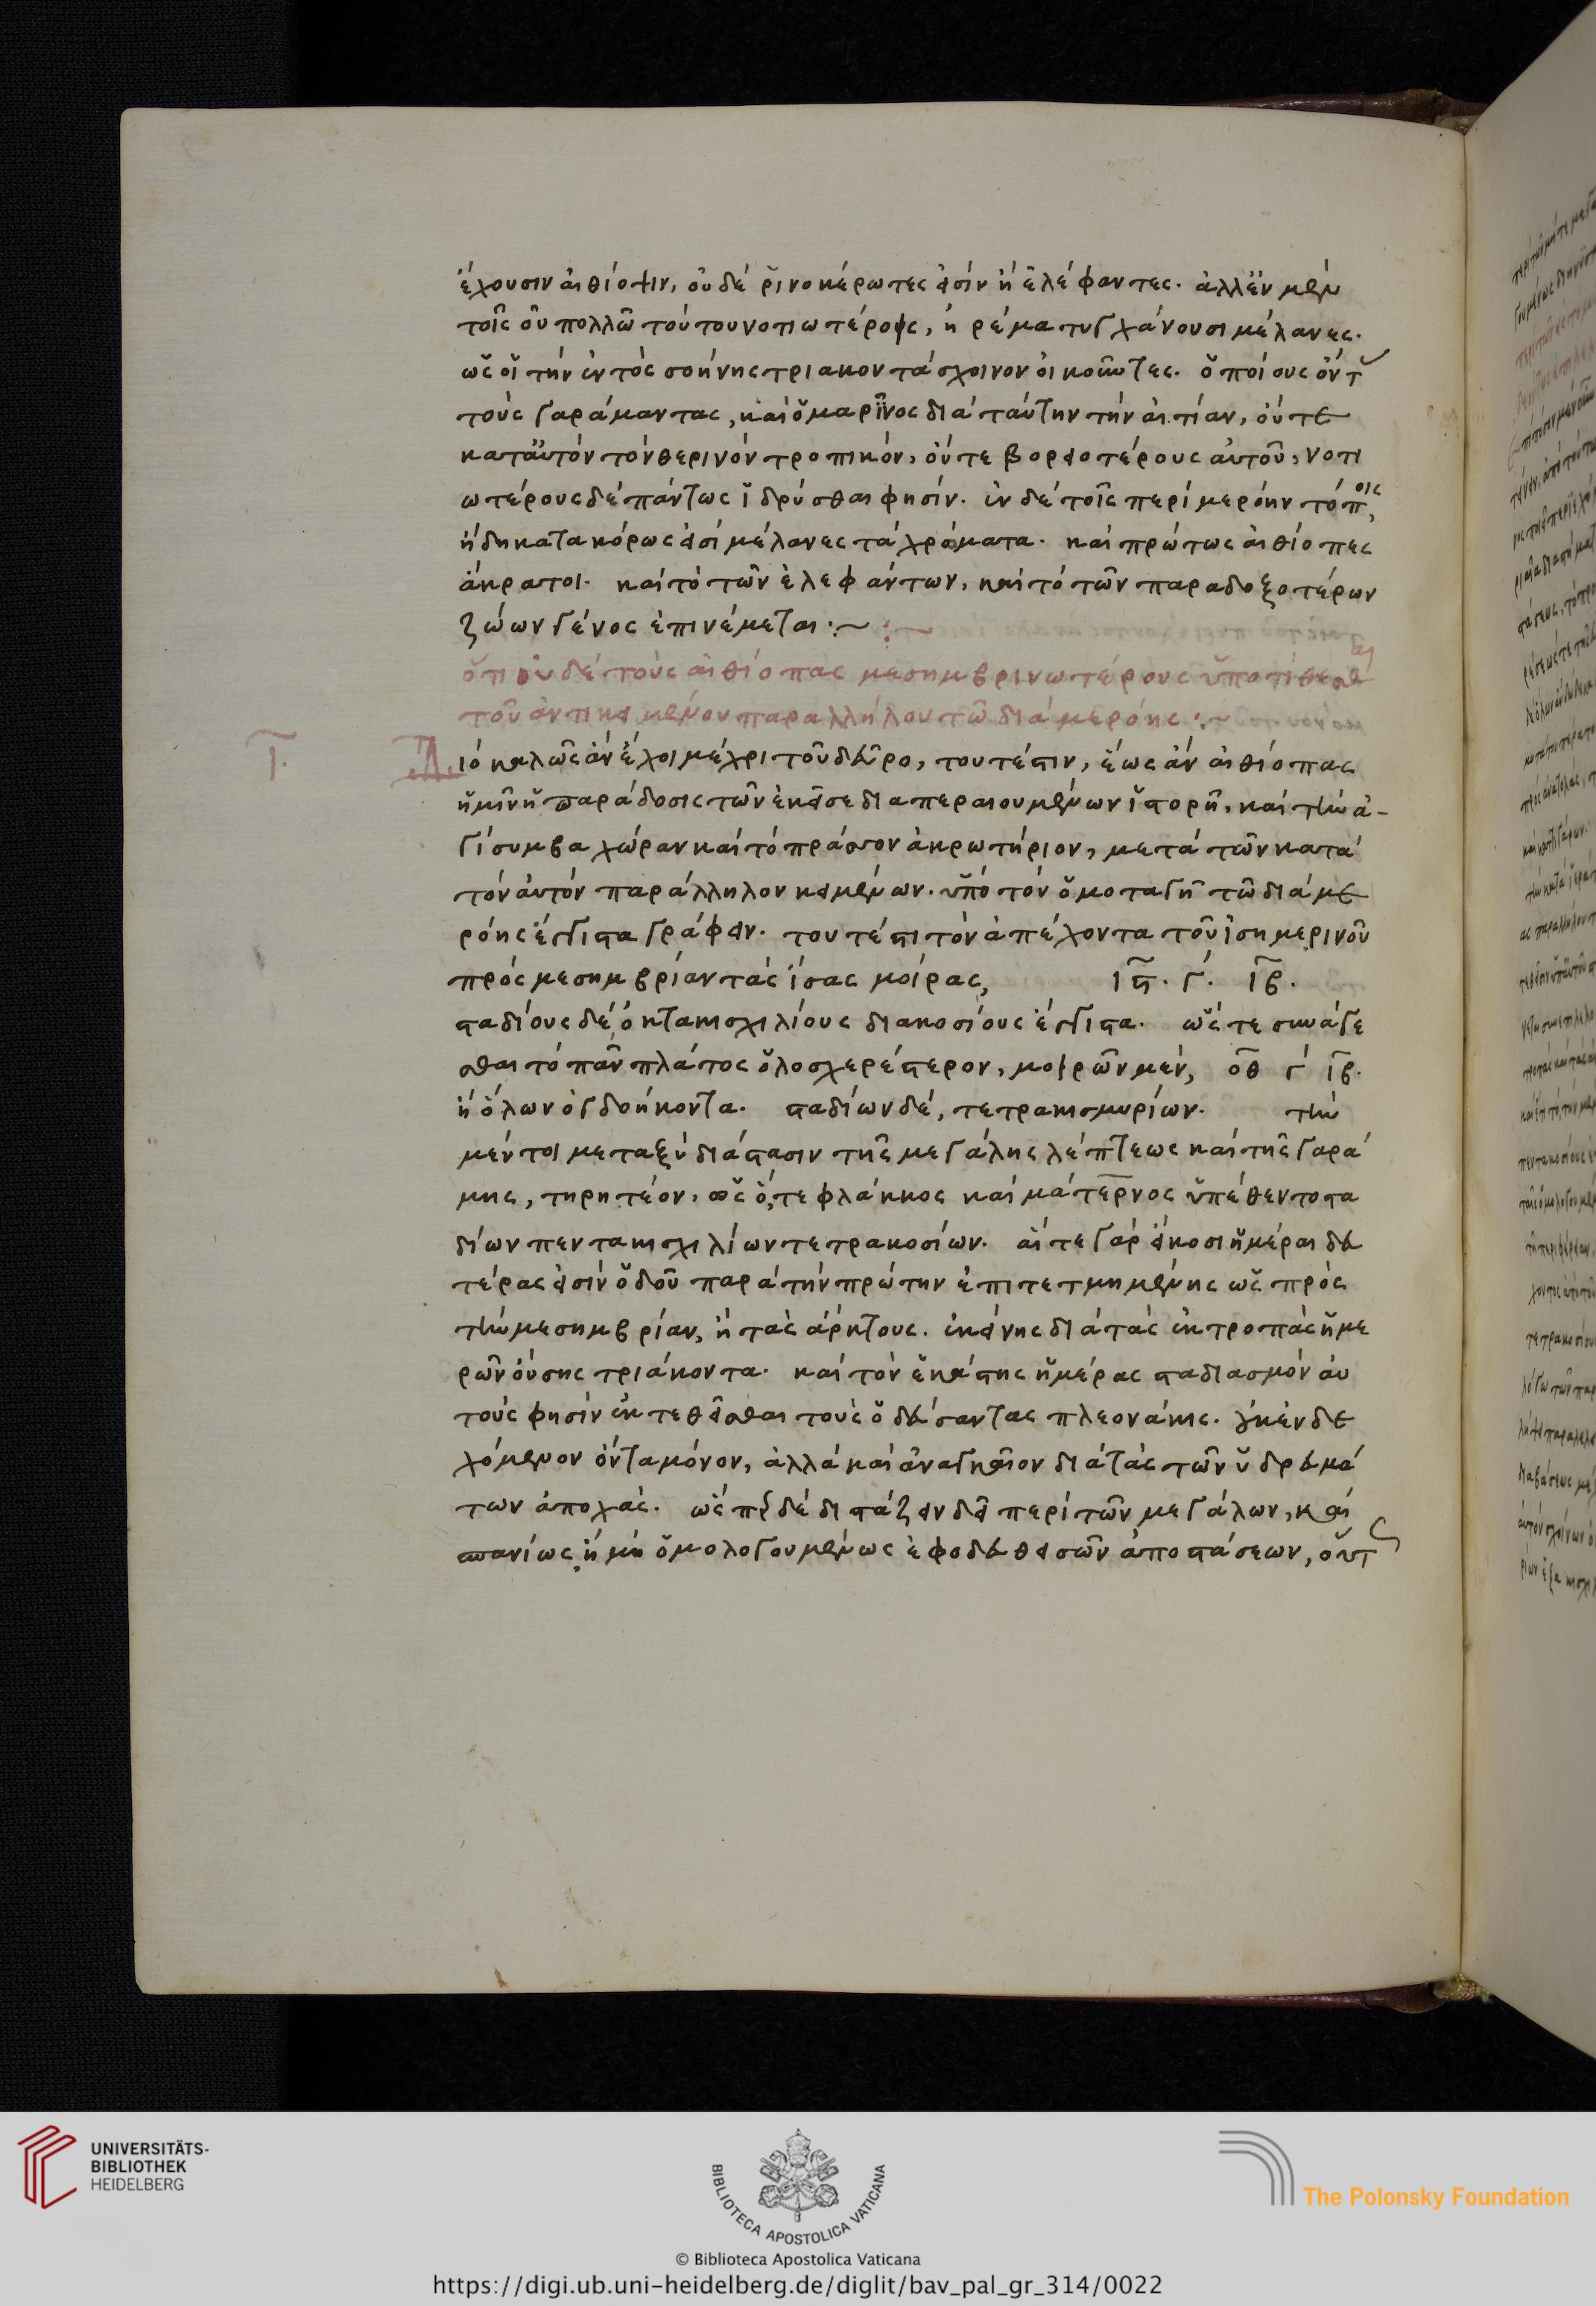 έχουσιν αἰθίοψιν, οὐδέ ῥινοκέρωτες εἰσίν ἢ ἐλέφαντες. ἀλλ' ἐν μὲν
τοῖς οὐ πολλῶ τούτου νοτιωτέροις, ἠρέμα τυγχάνουσι μέλανες.
ὡς οἱ τὴν ἐντὸς σοήνης τριακοντάσχοινον οἰκοῦντες. ὁποίους ὄντ
τοὺς γαράμαντας, καὶ ὁ μαρῖνος διὰ ταύτην τὴν αἰτίαν, οὔτε
κατ' αὐτὸν τὸν θερινὸν τροπικὸν, οὔτε βορειοτέρους αὐτοῦ, νοτι
ωτέρους δὲ πάντως ἱδρύσθαι φησίν. ἐν δὲ τοῖς περὶ μερόην τόποις,
ἤδη κατακόρως εἰσὶ μέλανες τὰ χρώματα. καὶ πρώτως αἰθίοπες
ἄκρατοι. καὶ τὸ τῶν ἐλεφάντων, καὶ τὸ τῶν παραδοξοτέρων
ζώων γένος ἐπινέμεται :~
ὅτι οὐδὲ τοὺς αἰθίοπας μεσημβρινωτέρους ὑποτίθεσθαι
τοῦ ἀντικειμένου παραλλήλου τῶ διὰ μερόης :~
ῑ.
Διὸ καλῶς ἂν ἔχοι μέχρι τοῦ δεῦρο, τουτέστιν, ἕως ἂν αἰθίοπας
ἡμῖν ἡ παράδοσις τῶν ἐκεῖσε διαπεραιουμένων ἱστορῆ, καὶ τὴν ἀ-
γίσυμβα χώραν καὶ τὸ πράσσον ἀκρωτήριον, μετὰ τῶν κατὰ
τὸν αὐτὸν παράλληλον κειμένων. ὑπὸ τὸν ὁμοταγῆ τῶ διὰ με
ρόης ἔγγιστα γράφειν. τουτέστι τὸν ἀπέχοντα τοῦ ἰσημερινοῦ
πρὸς μεσημβρίαν τὰς ἴσας μοίρας, ιϛ. γ. ιβ.
σταδίους δὲ ὀκτακισχιλίους διακοσίους ἔγγιστα. ὥστε συνάγε
σθαι τὸ πᾶν πλάτος ὁλοσχερέστερον, μοιρῶν μὲν, οθ γ ιβ.
ἢ ὅλων ὀγδοήκοντα. σταδίων δὲ, τετρακισμυρίων. τὴν
μέντοι μεταξὺ διάστασιν τῆς μεγάλης λέπτεως καὶ τῆς γαρά
μης, τηρητέον, ὡς ὅ,τε φλάκκος καὶ μάτερνος ὑπέθεντο στα
δίων πεντακισχιλίων τετρακοσίων. αἵ τε γὰρ εἴκοσι ἡμέραι δευ
τέρας εἰσὶν ὁδοῦ παρὰ τὴν πρώτην ἐπιτετμημένης ὡς πρὸς
τὴν μεσημβρίαν, ἢ τὰς ἄρκτους. ἐκείνης διὰ τὰς ἐκτροπὰς ἡμε
ρῶν οὔσης τριάκοντα. καὶ τὸν ἑκάστης ἡμέρας σταδιασμὸν αὐ
τούς φησὶν ἐκτεθεῖσθαι τοὺς ὁδεύσαντας πλεονάκις. οὐκ ἐνδε
χόμενον ὄντα μόνον, ἀλλὰ καὶ ἀναγκαῖον διὰ τὰς τῶν ὑδρευμά
των ἀποχάς. ὥσπερ δὲ διστάζειν δεῖ περὶ τῶν μεγάλων, καὶ
σπανίως, ἢ μὴ ὁμολογουμένως ἐφοδευθεισῶν ἀποστάσεων, οὕτως
UNIVERSITÄTS-
BIBLIOTHEK
HEIDELBERG
BIBLIOTECA APOSTOLICA VATICANA
© Biblioteca Apostolica Vaticana
The Polonsky Foundation
https://digi.ub.uni-heidelberg.de/diglit/bav_pal_gr_314/0022